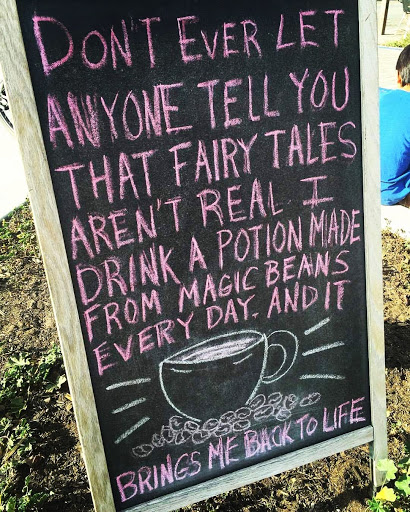 DON'T EVER LET
ANYONE TELL YOU
THAT FAIRY TALES
AREN'T REAL I
DRINK A POTION MADE
FROM MAGIC BEANS
EVERY DAY. AND IT
BRINGS ME BACK TO LIFE